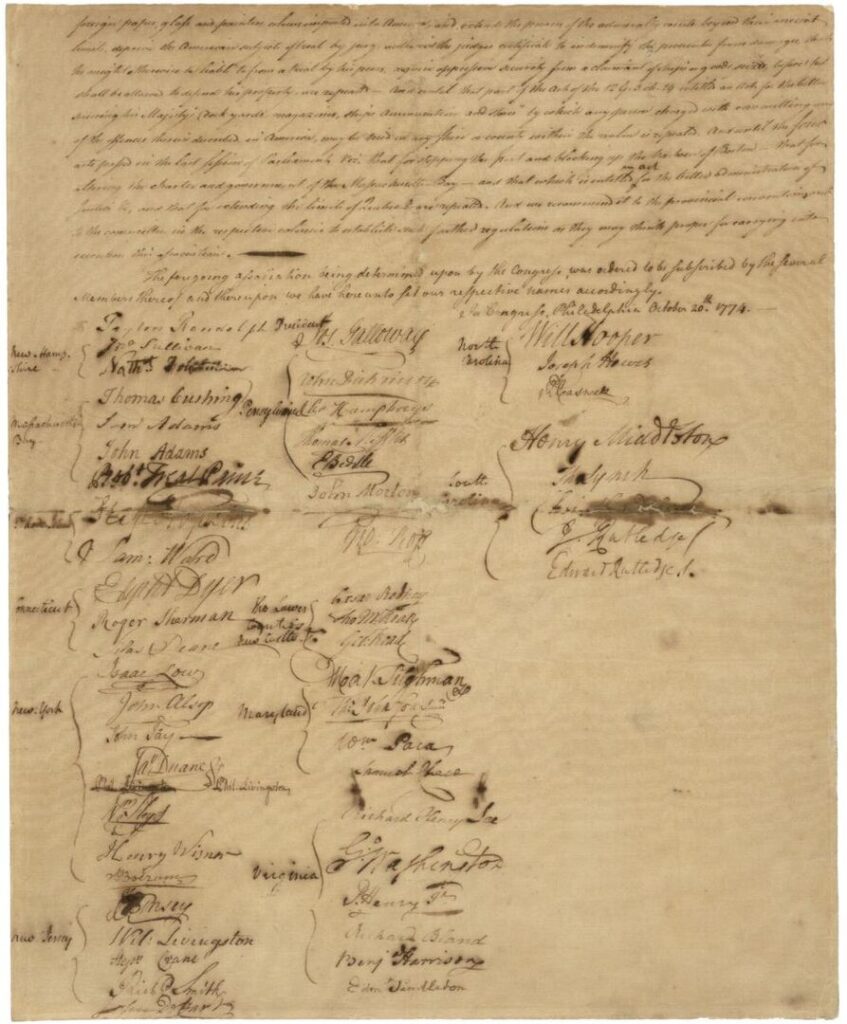 foreign paper, glass and painters colours imported into America, and extend the powers of the admiralty courts beyond their ancient
limits, deprive the American subject of trial by jury, authorize the judges certificate to indemnify the prosecutor from damages that
he might otherwise be liable to from a trial by his peers, require oppressive security from a claimant of ships or goods seized, before he
shall be allowed to defend his property, are repealed — And until that part of the Act of the 12 G. 3. ch. 24 entitled an Act for the better
securing his Majesty's dock yards magazines, ships Ammunition and stores" by which any person charged with committing any
of the offences therein described in America, may be tried in any shire or county within the realm is repealed. And until the four
acts passed in the last session of Parliament, Viz. that for stopping the port and blocking up the harbour of Boston — that for
altering the charter and government of the Massachusetts-Bay — and that which is entitled an act for the better administration of
Justice &c, and that for extending the limits of Quebec &c are repealed. And we recommend it to the provincial conventions and
to the committees in the respective colonies to establish such farther regulations as they may think proper for carrying into
execution this association.
The foregoing association being determined upon by the Congress, was ordered to be subscribed by the several
Members thereof and thereupon we have hereunto set our respective names accordingly.
In Congress, Philadelphia October 20th. 1774.
Peyton Randolph President
New-Hampshire
Jno Sullivan
Nathl Folsom
Massachusetts Bay
Thomas Cushing
Sam Adams
John Adams
Robt Treat Paine
Sam: Ward
Connecticut
Elipht Dyer
Roger Sherman
Silas Deane
New-York
Isaac Low
John Alsop
John Jay
Jas Duane
Phil. Livingston
Phil. Livingston
Henry Wisner
New Jersey
Wil: Livingston
Stepn Crane
Richd Smith
John De Hart
Pennsylvania
Jos Galloway
John Dickinson
Cha Humphreys
Thomas Mifflin
E Biddle
John Morton
Geo: Ross
the Lower
Counties
New Castle &c
Caesar Rodney
Tho M:Kean
Geo: Read
Maryland
Mat Tilghman
Wm Paca
Samuel Chase
Virginia
Richard Henry Lee
Go Washington
P. Henry Jr
Richard Bland
Benj Harrison
Edmd Pendleton
North
Carolina
Will Hooper
Joseph Hewes
Rd Caswell
South
Carolina
Henry Middleton
Tho Lynch
J. Rutledge
Edward Rutledge